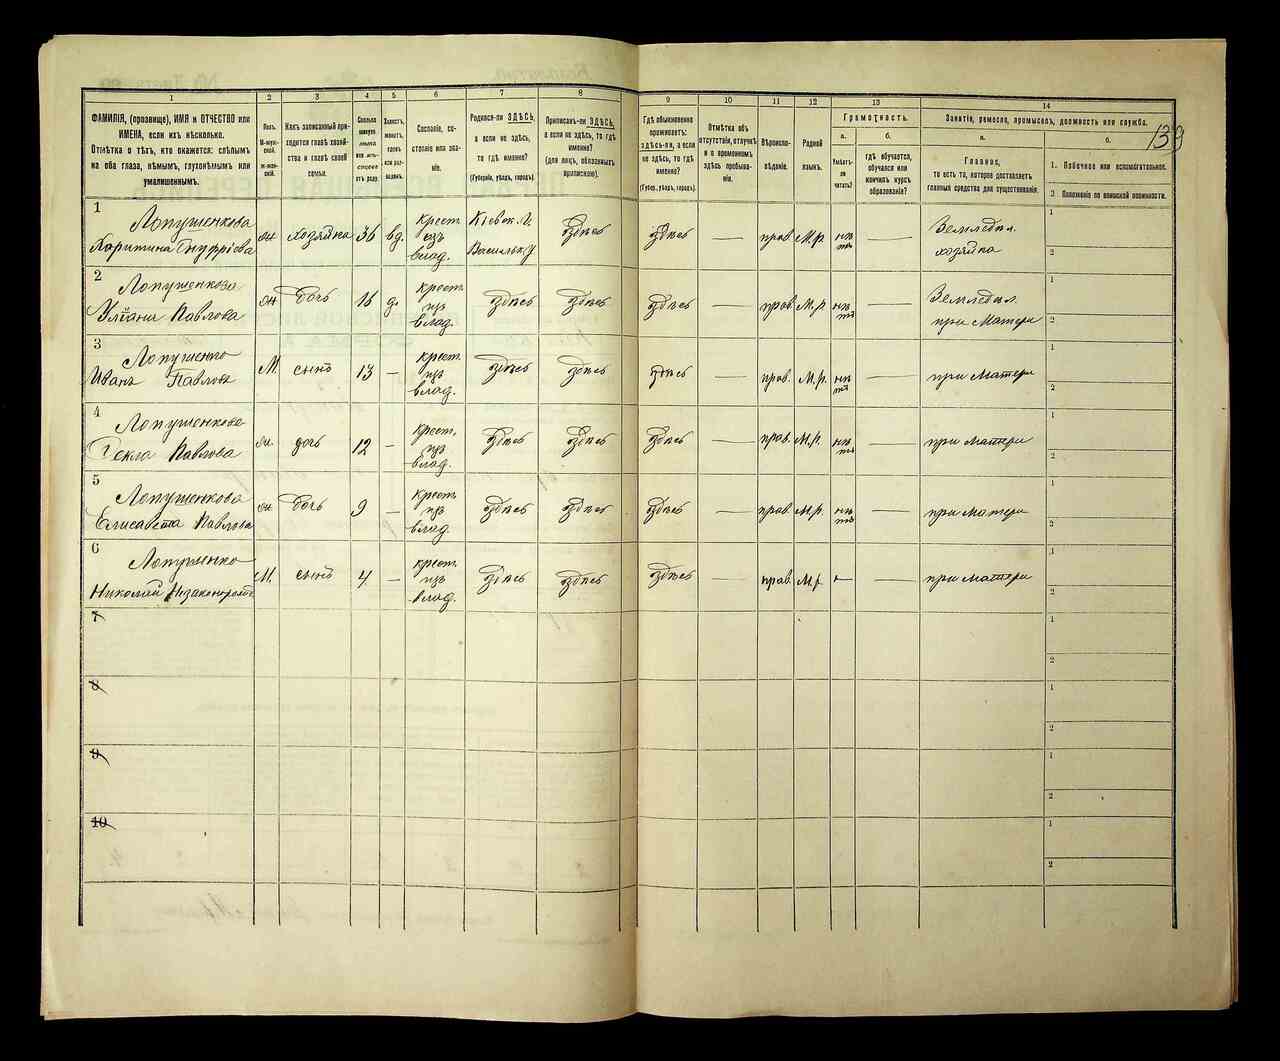 139
1 2 3 4 5 6 7 8 9 10 11 12 13 14
ФАМИЛІЯ, (прозвище), ИМЯ и ОТЧЕСТВО или
ИМЕНА, если ихъ нѣсколько.
Отмѣтка о тѣхъ, кто окажется: слѣпымъ
на оба глаза, нѣмымъ, глухонѣмымъ или
умалишеннымъ.
Полъ.
М-муж-
ской.
ж-жен-
скій.
Какъ записанный при-
ходится главѣ хозяй-
ства и главѣ своей
семьи.
Сколько
минуло
лѣтъ
или мѣс-
яцевъ
отъ роду.
Холостъ,
женатъ,
вдовъ
или раз-
веденъ.
Сословіе, со-
стояніе или зва-
ніе.
Родился-ли ЗДѢСЬ,
а если не здѣсь,
то гдѣ
именно?
(Губернія, уѣздъ, городъ).
Приписанъ-ли ЗДѢСЬ,
а если не здѣсь, то гдѣ
именно?
(для лицъ, обязанныхъ
припискою).
Гдѣ обыкновенно
проживаетъ:
здѣсь-ли, а если
не здѣсь, то гдѣ
именно?
(Губер., уѣздъ, городъ).
Отмѣтка объ
отсутствіи, отлучкѣ
и о временномъ
здѣсь пребыва-
ніи.
Вѣроиспо-
вѣданіе.
Родной
языкъ.
Грамотность.
а.
Умѣетъ-
ли
читать?
б.
гдѣ обучается,
обучался или
кончилъ курсъ
образованія?
Занятія, ремесло, промыселъ, должность или служба.
а.
Главное,
то есть то, которое доставляетъ
главныя средства для существованія.
б.
1. Побочное или вспомогательное.
2. Положеніе по воинской повинности.
1 Лопушенкова
Харитина Онуфріева жн хозяйка 36 вд. крест. изъ влад. Кіевск. г. Васильк. у. здѣсь здѣсь — прав. М.р. нѣтъ — Земледѣл. хозяйка 1 2
2 Лопушенкова
Уліяни Павлова жн дочь 16 д. крест. изъ влад. здѣсь здѣсь здѣсь — прав. М.р. нѣтъ — Земледѣл. при Матери 1 2
3 Лопушенко
Иванъ Павловъ М. сынъ 13 — крест. изъ влад. здѣсь здѣсь здѣсь — прав. М.р. нѣтъ — при Матери 1 2
4 Лопушенкова
Текла Павлова жн. дочь 12 — крест. изъ влад. здѣсь здѣсь здѣсь — прав. М.р. нѣтъ — при Матери 1 2
5 Лопушенкова
Елисавета Павлова жн дочь 9 — крест. изъ влад. здѣсь здѣсь здѣсь — прав. М.р. нѣтъ — при Матери 1 2
6 Лопушенко
Николай Незаконорожд М. сынъ 4 — крест. изъ влад. здѣсь здѣсь здѣсь — прав. М.р. — при Матери 1 2
7 1 2
8 1 2
9 1 2
10 1 2